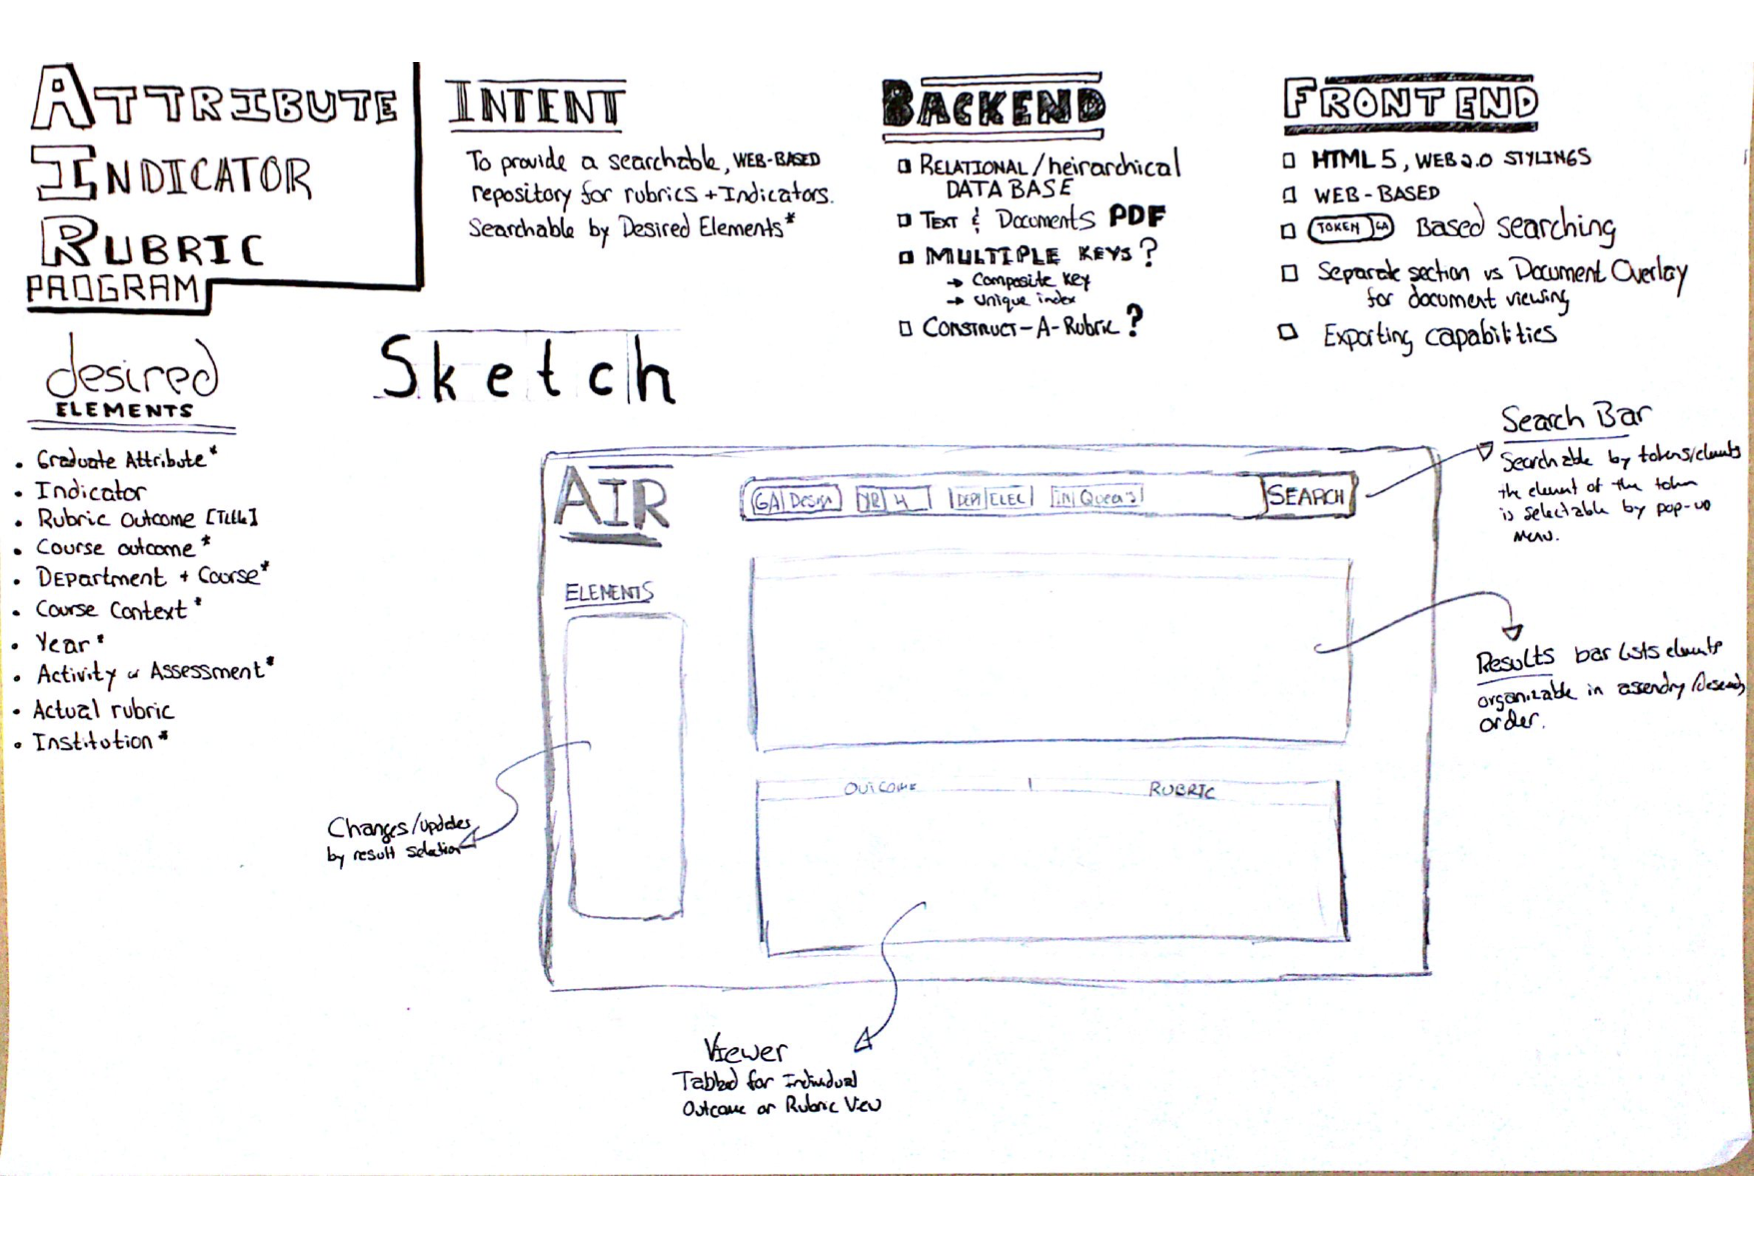 ATTRIBUTE
INDICATOR
RUBRIC
PROGRAM
INTENT
To provide a searchable, WEB-BASED
repository for rubrics + Indicators.
Searchable by Desired Elements*
BACKEND
RELATIONAL/heirarchical
DATABASE
TEXT & Documents PDF
MULTIPLE KEYS?
→ Composite Key
→ Unique index
CONSTRUCT-A-Rubric?
FRONTEND
HTML5, WEB 2.0 STYLINGS
WEB-BASED
TOKEN GA Based searching
Separate section vs Document Overlay
for document viewing
Exporting capabilities
desired
ELEMENTS
• Graduate Attribute*
• Indicator
• Rubric Outcome [Title]
• Course outcome*
• DEpartment + Course*
• Course Context*
• Year*
• Activity or Assessment*
• Actual rubric
• Institution*
Sketch
AIR
GA Design YR 4 DEPT ELEC IN Queen's SEARCH
ELEMENTS
OUTCOME RUBRIC
Search Bar
Searchable by tokens/elements
the element of the token
is selectable by pop-up
Menu.
Results bar lists elements
organizable in ascending/descending
order.
Changes/updates
by result selection
Viewer
Tabbed for Individual
Outcome or Rubric View